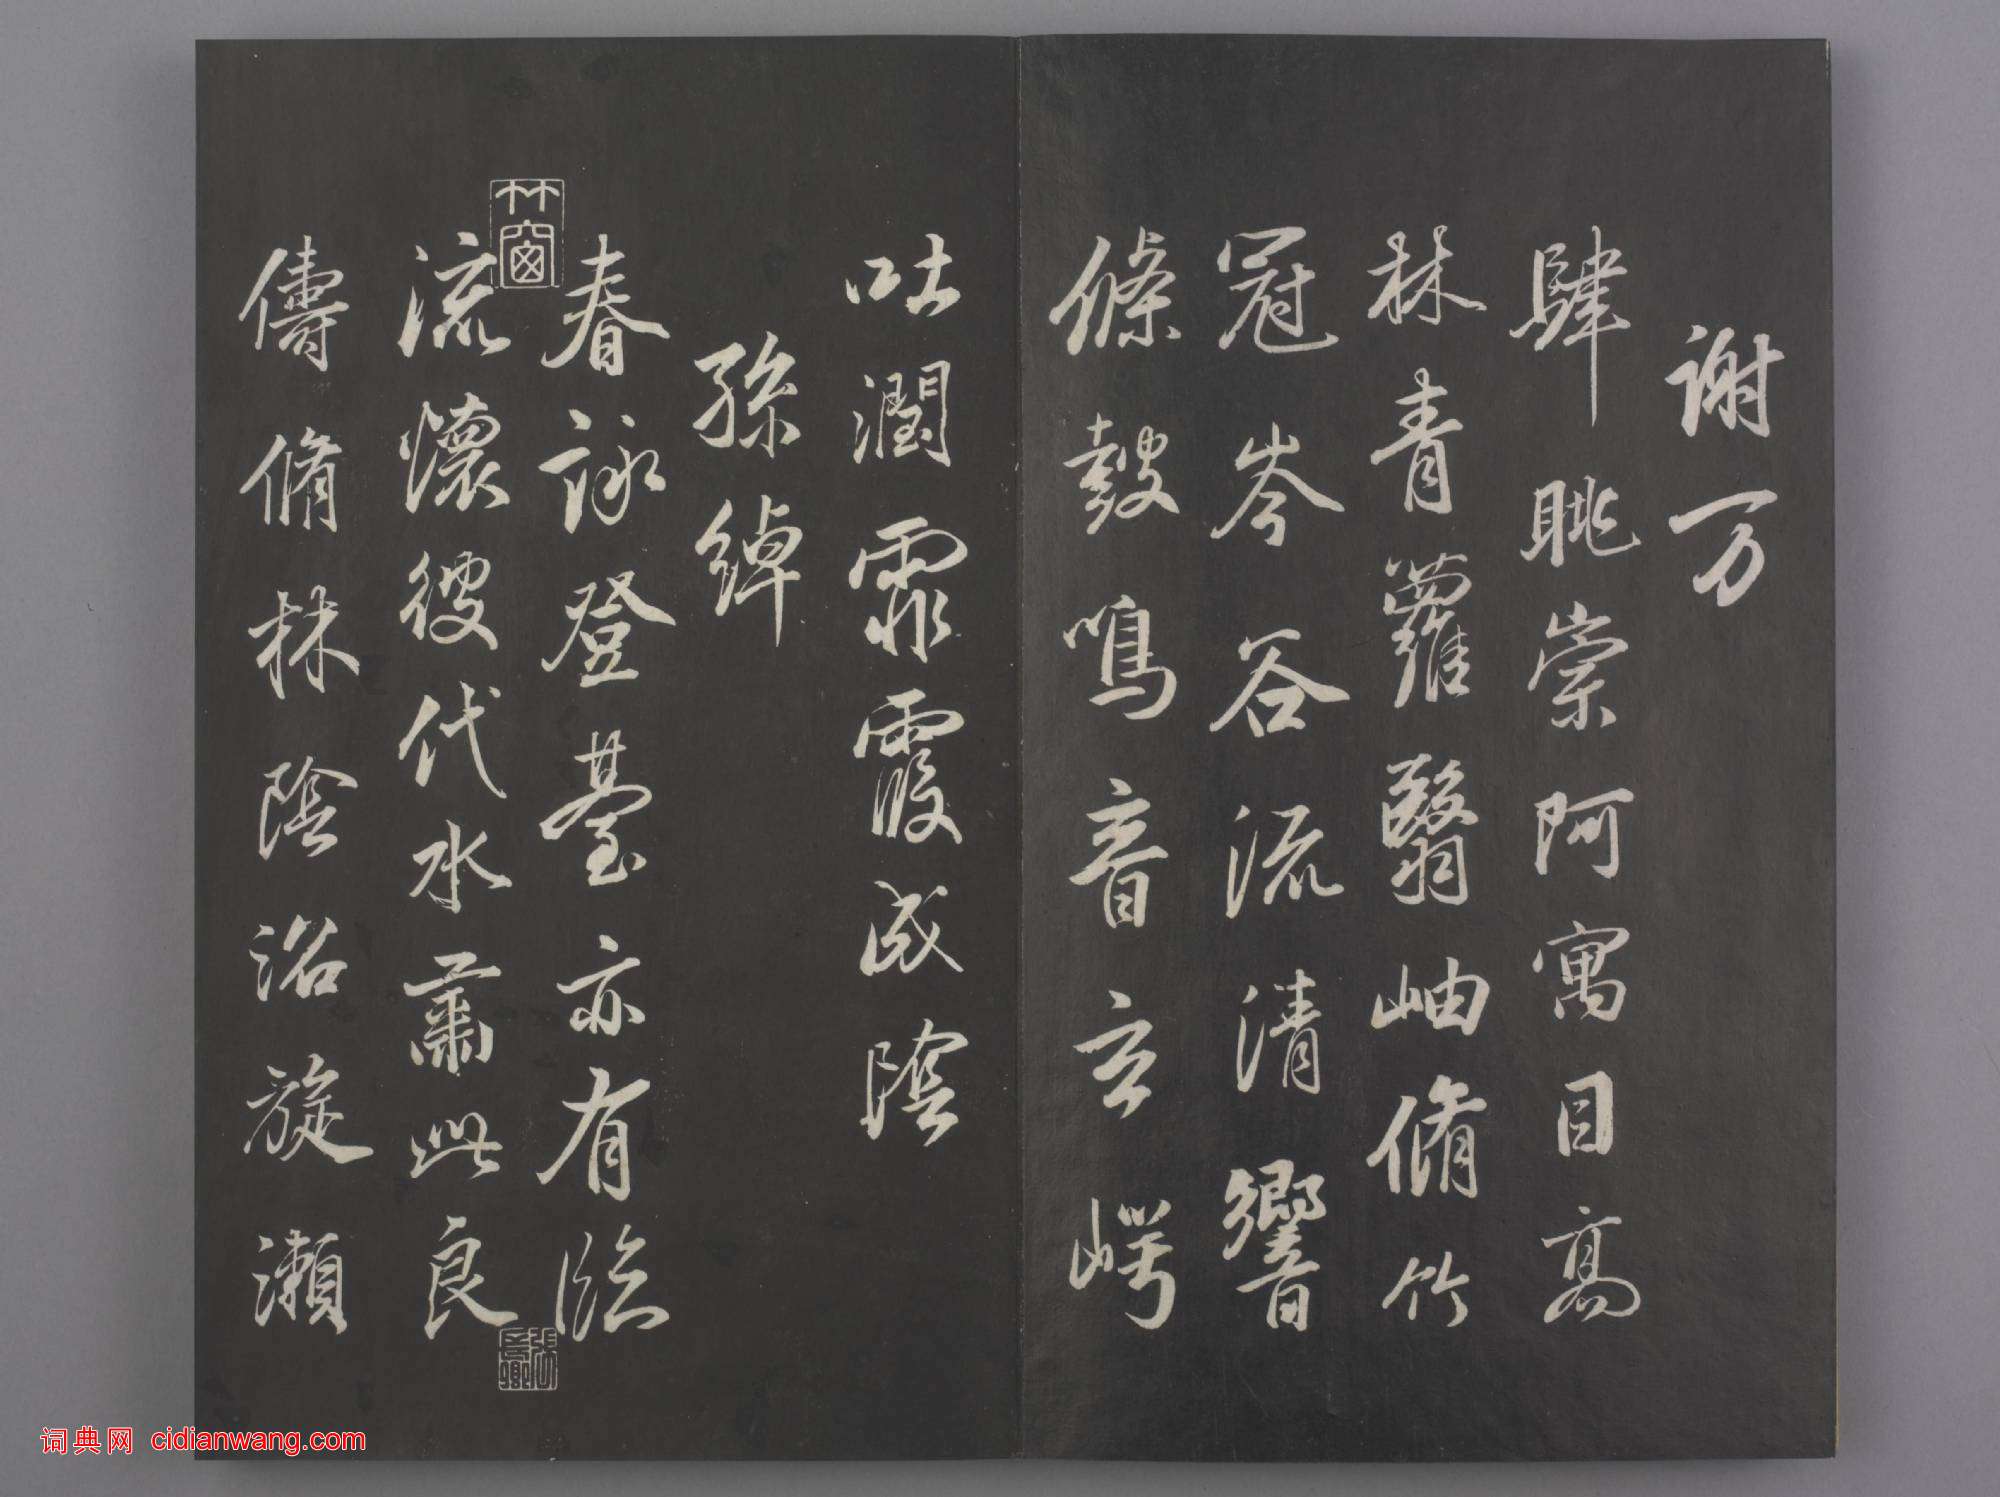 谢万
肆眺崇阿寓目高
林青蘿翳岫脩竹
冠岑谷流清響
條鼓鳴音玄崿
吐潤霏霧成陰
孫綽
春詠登臺亦有臨
流懷彼伐木肅此良
儔脩林陰沼旋瀬
竹窗
詞典网 cidianwang.com